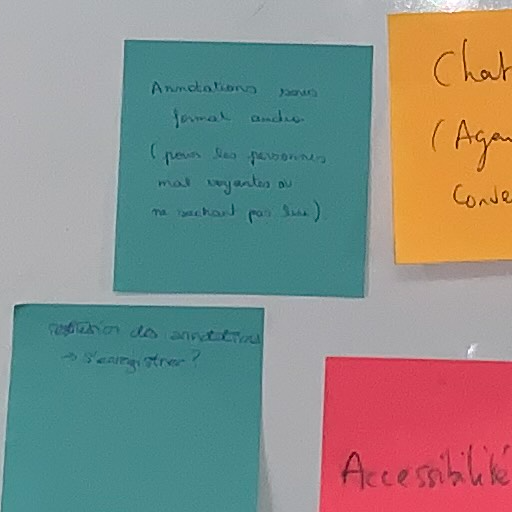 Annotations sous
format audio
(pour les personnes
mal voyantes ou
ne sachant pas lire).
Chat
(Agen
Conve
des annotations
→ s'enregistrer ?
Accessibilité